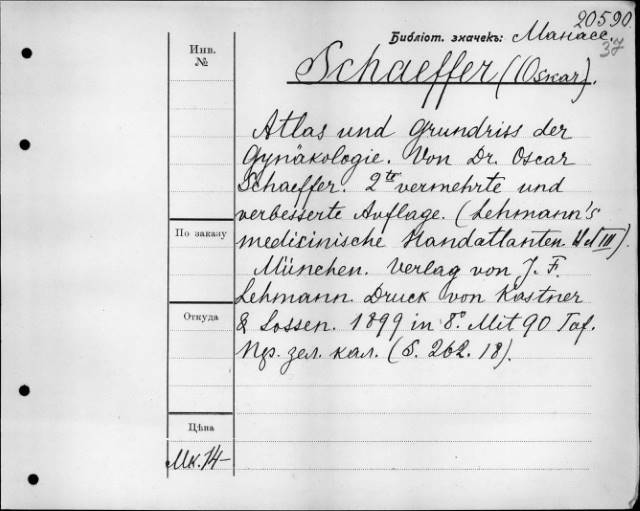 20590
Библіот. значекъ: Манасе.
37
Инв.
№
Schaeffer (Oskar).
Atlas und Grundriss der
Gynäkologie. Von Dr. Oscar
Schaeffer. 2te vermehrte und
verbesserte Auflage. (Lehmann's
По заказу
medisinische Handatlanten III).
München. Verlag von J. F.
Lehmann. Druck von Kastner
Откуда
& Lossen. 1899 in 8º. Mit 90 Taf.
зел. кал. (S. 262. 18).
Цѣна
Мк. 14-